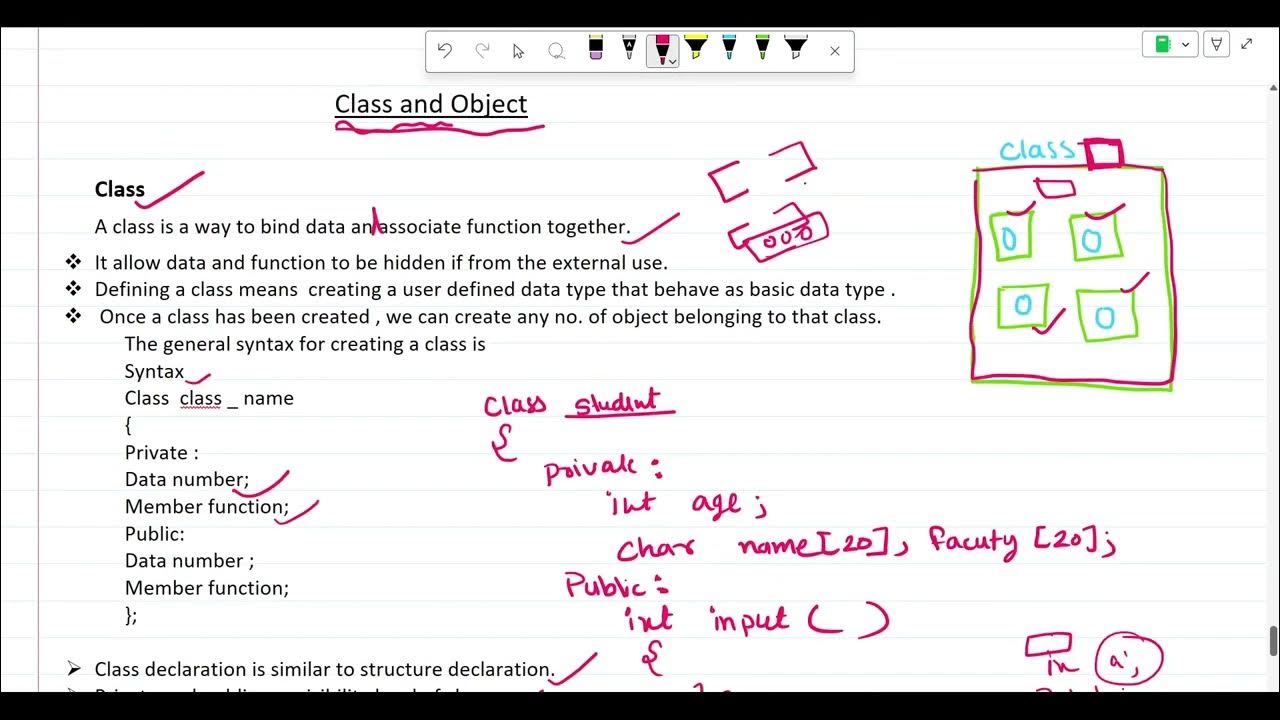 Class and Object
class
Class
A class is a way to bind data an associate function together.
❖ It allow data and function to be hidden if from the external use.
❖ Defining a class means creating a user defined data type that behave as basic data type .
❖ Once a class has been created , we can create any no. of object belonging to that class.
The general syntax for creating a class is
Syntax
Class class _ name
{
Private :
Data number;
Member function;
Public:
Data number ;
Member function;
};
class student
{
private :
int age ;
char name [20], facuty [20];
Public :
int input ( )
{
in a;
➢ Class declaration is similar to structure declaration.